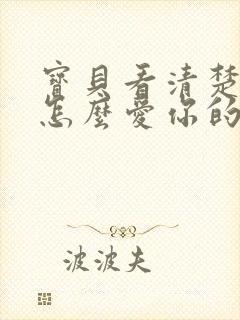 寶貝看清楚
怎麼愛你的
波波夫